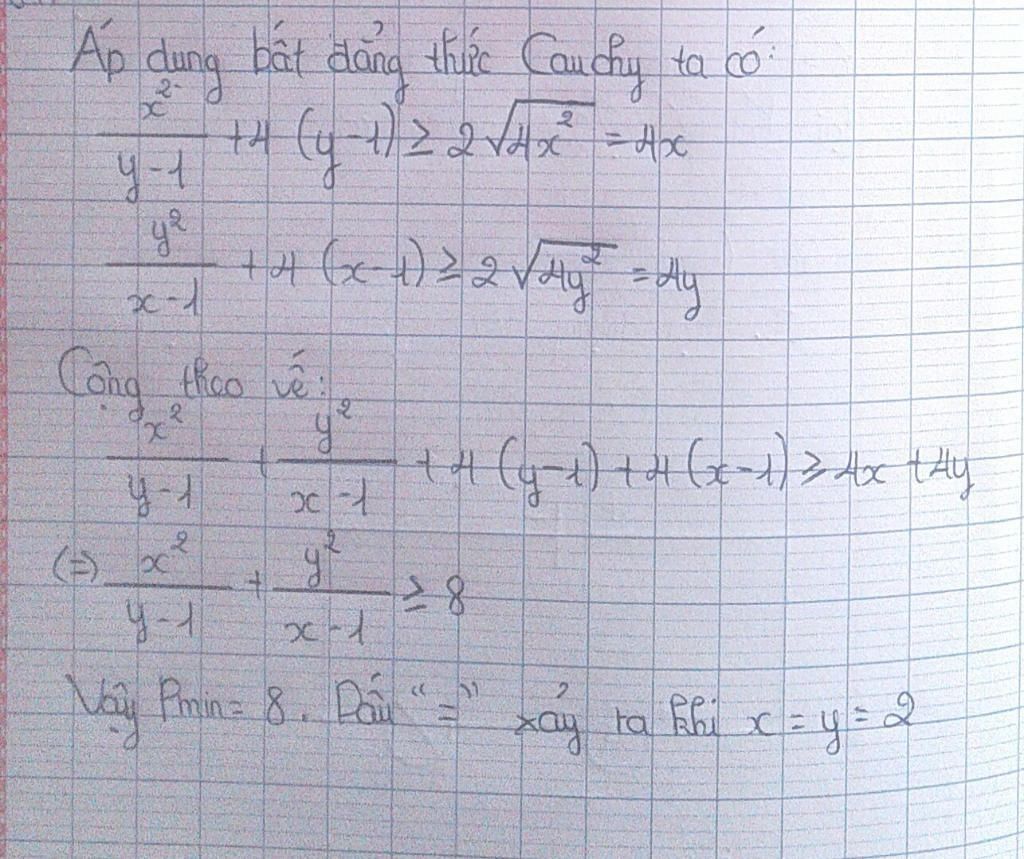 Áp dụng bất đẳng thức Cauchy ta có:
x²/(y-1) + 4(y-1) ≥ 2√(4x²) = 4x
y²/(x-1) + 4(x-1) ≥ 2√(4y²) = 4y
Cộng theo vế:
x²/(y-1) + y²/(x-1) + 4(y-1) + 4(x-1) ≥ 4x + 4y
(=) x²/(y-1) + y²/(x-1) ≥ 8
Vậy Pmin = 8. Dấu "=" xảy ra khi x = y = 2